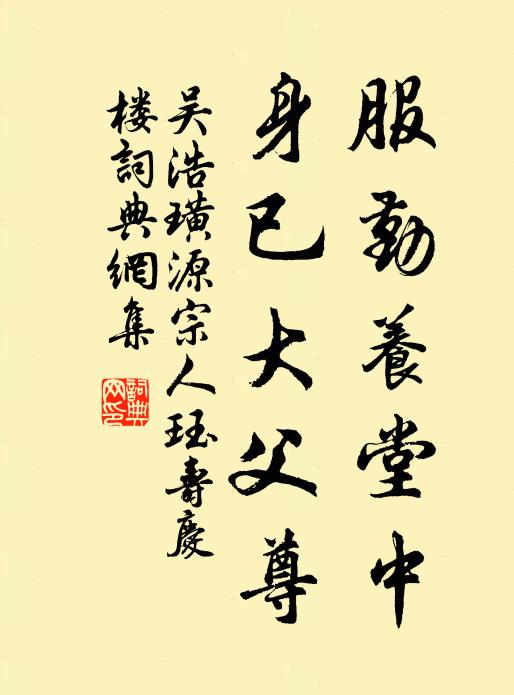 服勤養堂中
身已大父尊
吴浩璜源宗人珏壽慶
楼詞典網集
詞典网印